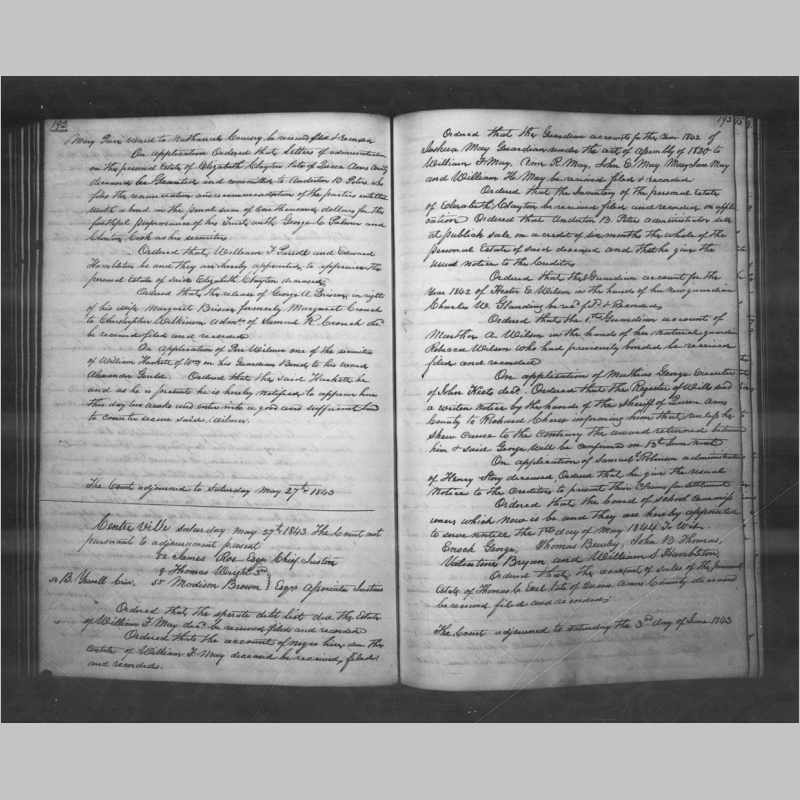 192
Mary Ann ward to Nathaniel Comegy be received filed & recorded
On application Ordered that letters of administration
on the personal estate of Elizabeth Clayton late of Queen Anns County
deceased be Granted and committed to Anderton B Peters who
files the renunciation and recommendation of the parties interested
with a bond in the penal sum of one thousand dollars for the
faithful performance of his Trust, with George C Palmer and
Clinton Cook as his securities
Ordered that William F Pursell and Edward
Hambleton be and they are hereby appointed to appraise the
personal estate of said Elizabeth Clayton deceased
Ordered that the release of George A Briscoe in right
of his wife Margaret Briscoe formerly Margaret Crouch
to Christopher Wilkinson admr of Samuel R Crouch dec
be received filed and recorded
On application of Wilmer one of the securities
of William Hackett of Wm on his Guardian Bond to his ward
Alexander Gould. Ordered that the said Hackett be
and as he is present he is hereby notified to appear here
this day two weeks and enter into a good and sufficient bond
to counter secure said Wilmer.
The Court adjourned to Saturday May 27th 1843
Centreville Saturday May 27th 1843 The Court met
pursuant to adjournment present
James Roe Esqr Chief Justice
Thomas Wright 3rd
Madison Brown } Esqrs Associate Justices
B. Yewell Crier.
Ordered that the sperate debt list due the Estate
of William F May decd. be received filed and recorded
Ordered that the account of negro hire due the
estate of William F May deceased be received filed
and recorded.
193
Ordered that the Guardian accounts for the Year 1842 of
May Guardian under the act of Assembly of 1830 to
William F May, Ann R. May, John C May Mary Jane May
and William H May be received filed & recorded
Ordered that the Inventory of the personal estate
of Elizabeth Clayton be received filed and recorded on appli
cation Ordered that Anderton B. Peters administrator sell
at publick sale on a credit of six months the whole of the
personal Estate of said deceased and that he give the
usual notice to the Creditors
Ordered that the Guardian account for the
Year 1842 of Hester E Wilson in the hands of her new guardian
Charles W. Glanding be recd fd & Recorded
Ordered that the 1st Guardian account of
Martha A Wilson in the hands of her natural guardian
Richard Wilson who had previously bonded be received
filed and recorded
On application of Mathias George Executor
of John Keets decd. Ordered that the Register of Wills send
a written notice by the hands of the Sheriff of Queen Anns
County to Richard Chance informing him that unless he
shew cause to the contrary the award returned between
him & said George will be confirmed on 13th June next
On application of Samuel T Robinson administrator
of Henry Story deceased, Ordered that he give the usual
Notice to the Creditors to present their Claims for settlement
Ordered that the board of school commiss
ioners which now is be and they are hereby appointed
to serve until the 1st day of May 1844 To Wit
Enoch George, Thomas Bewley, John B Thomas,
Valentine Bryan and William S Hambleton
Ordered that the account of sales of the personal
Estate of Thomas C Earl late of Queen Anns County deceased
be received filed and recorded;
The Court adjourned to saturday the 3rd day of June 1843